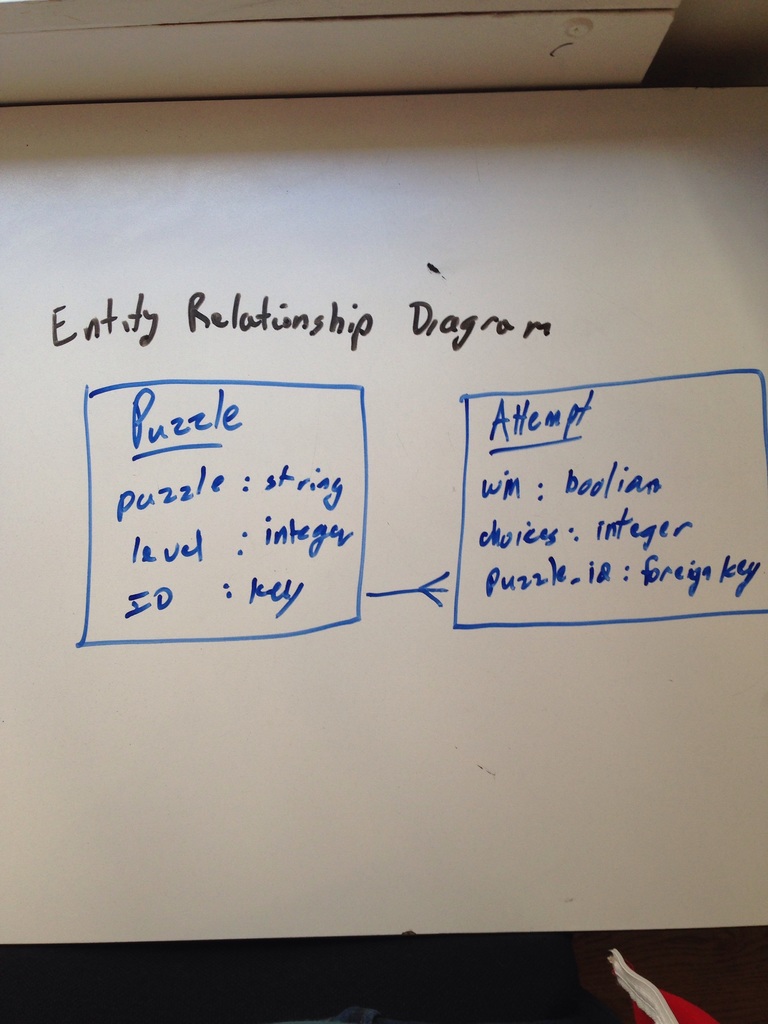 Entity Relationship Diagram
Puzzle
puzzle : string
level : integer
ID : key
Attempt
win : boolian
choices : integer
puzzle_id : foreign key